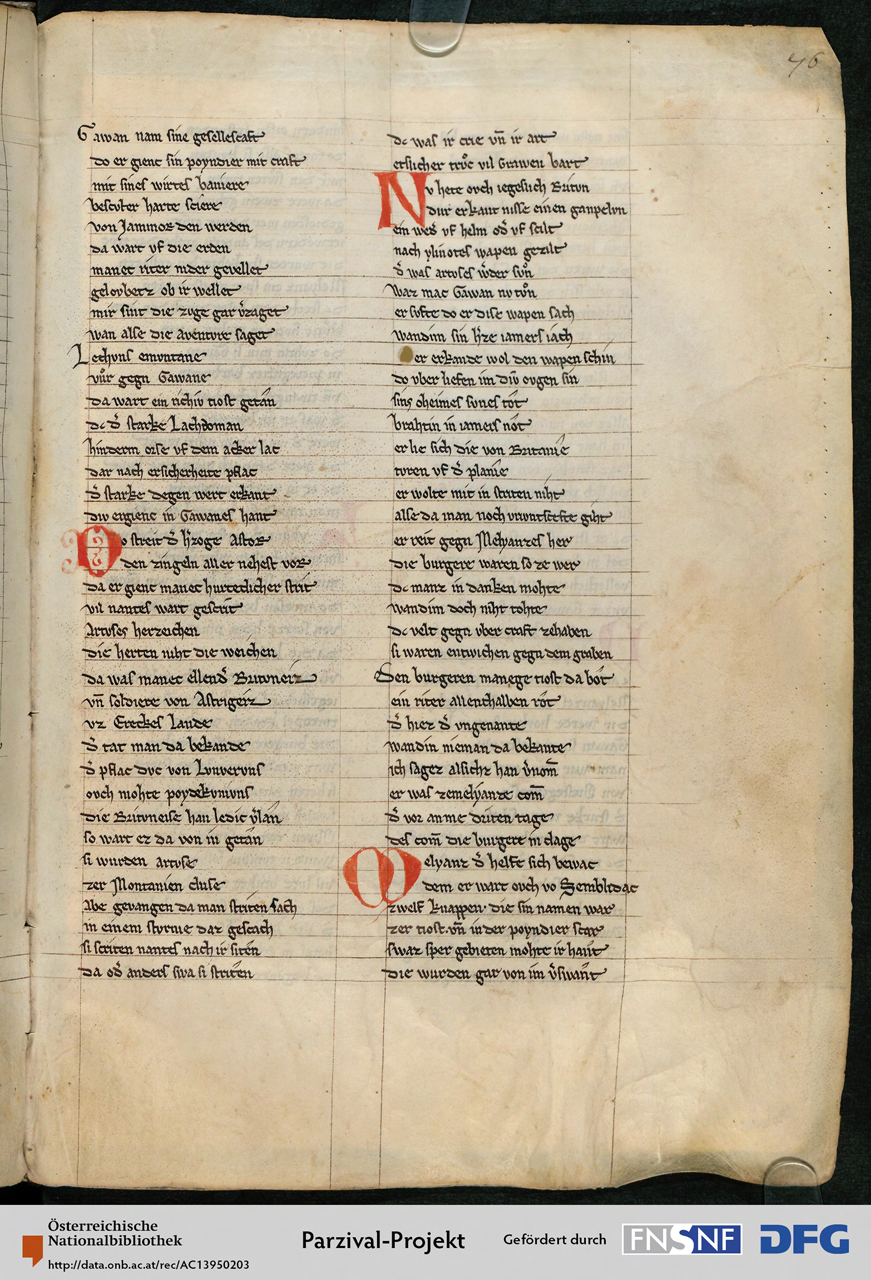 76
Gawan nam sine gesellescaft
do er gienc sin poyndier mit craft
mit sines wirtes baniere
bescvter harte sciere
von Jammor den werden
da wart vf die erden
manec riter nider gevellet
gelovbetz ob ir wellet
mir sint die zvge gar v̄zaget
wan alse die aventvre saget
Lechvns emvntane
vůr gegn Gawane
da wart ein richiv tiost getân
dc d̄ starke Lachdoman
hinderm orse vf dem acker lac
dar nach er sicherheite pflac
d̄ starke degen wert erkant
div ergienc in Gawanes hant
Do streit d̄ h̄zoge Astor
den zingeln aller nehest vor
da ergienc manec hurteclicher strit
vil nantes wart gescrit
Artvses herzeichen
die herten niht die weichen
da was manec ellend̄ Britvneiz
vn̄ soldiere von Astrigeiz
vz Ereckes lande
d̄ tat man da bekande
d̄ pflac dvc von Lvnvervns
ovch mohte poydekvnivns
die Britvneise han ledic v̄lan
so wart ez da von in getân
si wurden artvse
zer Montanien cluse
Abe gevangen da man striten sach
in einem stvrme daz gescach
si scriten nantes nach ir siten
da od̄ anders swa si striten
dc was ir crie vn̄ ir art
etslicher trůc vil Grawen bart
Nv hete ovch iegeslich Britvn
dvr erkant nisse einen ganpelvn
ein wed̄ vf helm od̄ vf scilt
nach ylinotes wapen gezilt
d̄ was artvses w̄der svn
Waz mac Gawan nv tvn
er svfte do er dise wapen sach
wandim sin h̄ze iamers iach
er erkande wol den wapen schin
do vber liefen im div ovgen sin
sins oheimes svnes tôt
brahtin in iamers nôt
er lie sich die von Britanie
tvren vf d̄ planie
er wolte mit in striten niht
alse da man noch vrivntscefte giht
er reit gegn Melyanzes her
die burgere waren so ze wer
dc manz in danken mohte
wandim doch niht tohte
dc velt gegn vber craft zehaben
si waren entwichen gegn dem graben
Den burgeren manege tiost da bôt
ein riter allenthalben rôt
d̄ hiez d̄ vngenante
wandin nieman da bekante
ich sagez alsichz han v̄nom̄
er was zemelyanze com̄
d̄ vor anme driten tage
des com̄ die burgere in clage
Melyanz d̄ helfe sich bewac
dem er wart ovch vō Semblidac
zwelf knappen die sin namen war
zer tiost vn̄ in der poynder scar
swaz sper gebieten mohte ir hant
die wurden gar von im v̄swant
Österreichische
Nationalbibliothek
http://data.onb.ac.at/rec/AC13950203
Parzival-Projekt
Gefördert durch
FNSNF
DFG